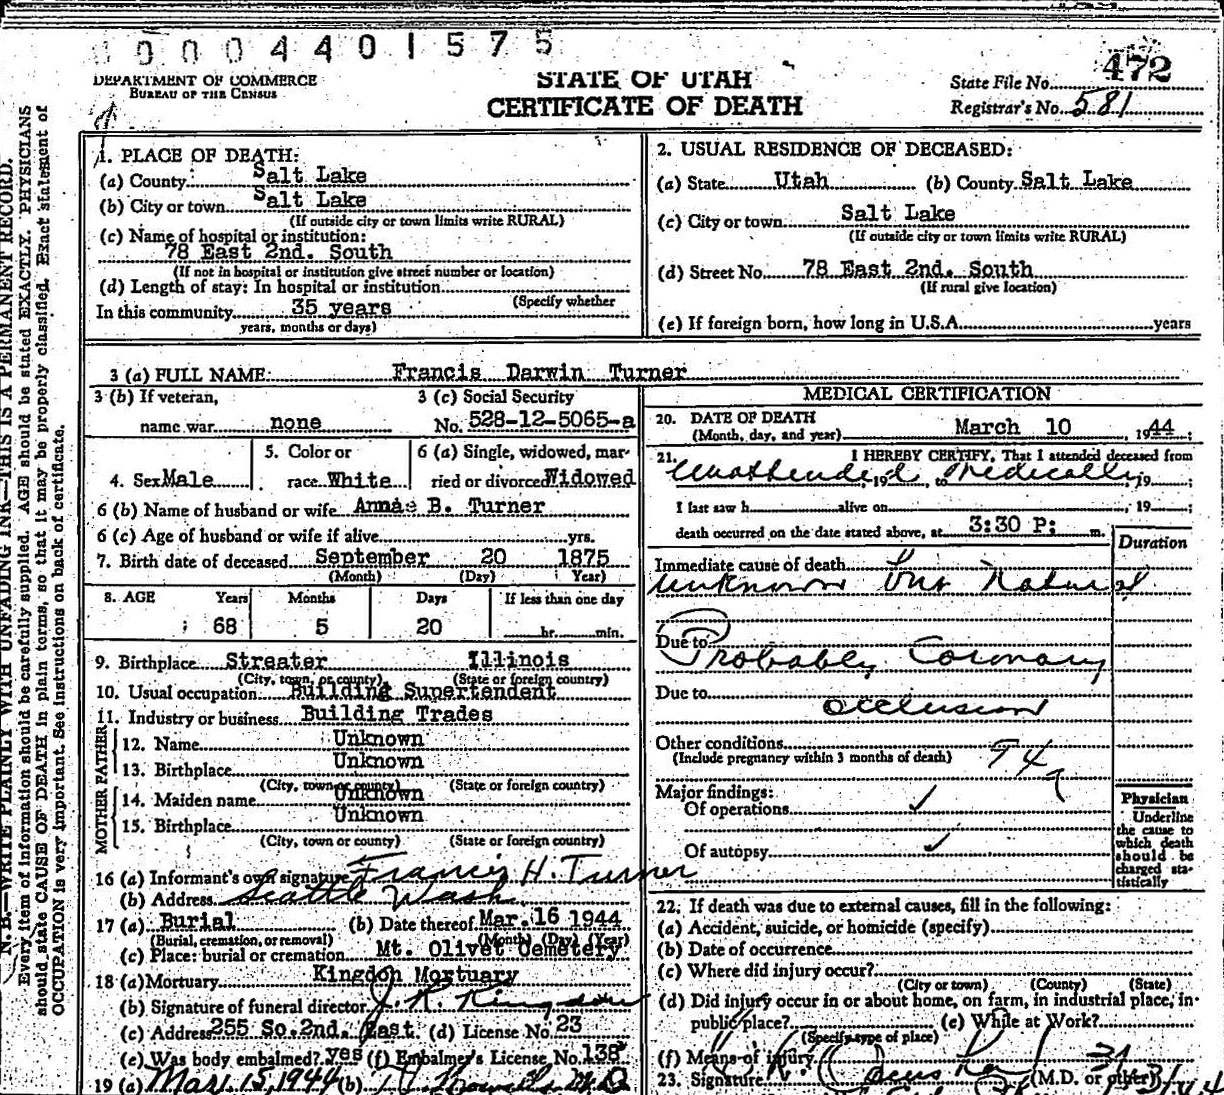 0 0 0 4 4 0 1 5 7 5
DEPARTMENT OF COMMERCE
BUREAU OF THE CENSUS
STATE OF UTAH
CERTIFICATE OF DEATH
State File No. 472
Registrar's No. 581
N. B.—WRITE PLAINLY WITH UNFADING INK—THIS IS A PERMANENT RECORD.
Every item of information should be carefully supplied. AGE should be stated EXACTLY. PHYSICIANS
should state CAUSE OF DEATH in plain terms, so that it may be properly classified. Exact statement of
OCCUPATION is very important. See instructions on back of certificate.
1. PLACE OF DEATH:
(a) County Salt Lake
(b) City or town Salt Lake
(If outside city or town limits write RURAL)
(c) Name of hospital or institution:
78 East 2nd. South
(If not in hospital or institution give street number or location)
(d) Length of stay: In hospital or institution
(Specify whether
In this community 35 years
years, months or days)
2. USUAL RESIDENCE OF DECEASED:
(a) State Utah (b) County Salt Lake
(c) City or town Salt Lake
(If outside city or town limits write RURAL)
(d) Street No. 78 East 2nd. South
(If rural give location)
(e) If foreign born, how long in U.S.A. years
3 (a) FULL NAME: Francis Darwin Turner
3 (b) If veteran,
name war none
3 (c) Social Security
No. 528-12-5065-a
4. Sex Male
5. Color or
race White
6 (a) Single, widowed, mar-
ried or divorced Widowed
6 (b) Name of husband or wife Annie B. Turner
6 (c) Age of husband or wife if alive yrs.
7. Birth date of deceased September 20 1875
(Month) (Day) (Year)
8. AGE Years Months Days If less than one day
68 5 20 hr. min.
9. Birthplace Streater Illinois
(City, town, or county) (State or foreign country)
10. Usual occupation Building Supertendent
11. Industry or business Building Trades
FATHER
12. Name Unknown
13. Birthplace Unknown
(City, town or county) (State or foreign country)
MOTHER
14. Maiden name Unknown
15. Birthplace Unknown
(City, town or county) (State or foreign country)
16 (a) Informant's own signature Francis H. Turner
(b) Address Seattle Wash.
17 (a) Burial (b) Date thereof Mar. 16 1944
(Burial, cremation, or removal) (Month) (Day) (Year)
(c) Place: burial or cremation Mt. Olivet Cemetery
18 (a) Mortuary Kingdon Mortuary
(b) Signature of funeral director J. R. Kingdon
(c) Address 255 So. 2nd. East (d) License No. 23
(e) Was body embalmed? yes (f) Embalmer's License No. 138
19 (a) Mar. 15, 1944 (b)
MEDICAL CERTIFICATION
20. DATE OF DEATH
(Month, day, and year) March 10 , 1944 ;
21. I HEREBY CERTIFY, That I attended deceased from
Unattended , 19 , to Medically , 19 ;
I last saw h alive on , 19 ;
death occurred on the date stated above, at 3:30 P: m.
Duration
Immediate cause of death
Unknown but Natural
Due to
Probably Coronary
Due to
occlusion
Other conditions
(Include pregnancy within 3 months of death) 94
Major findings:
Of operations ✓
Of autopsy ✓
Physician
Underline
the cause to
which death
should be
charged sta-
tistically
22. If death was due to external causes, fill in the following:
(a) Accident, suicide, or homicide (specify)
(b) Date of occurrence
(c) Where did injury occur?
(City or town) (County) (State)
(d) Did injury occur in or about home, on farm, in industrial place, in-
public place? (e) While at Work?
(Specify type of place)
(f) Means of injury
23. Signature (M.D. or other)